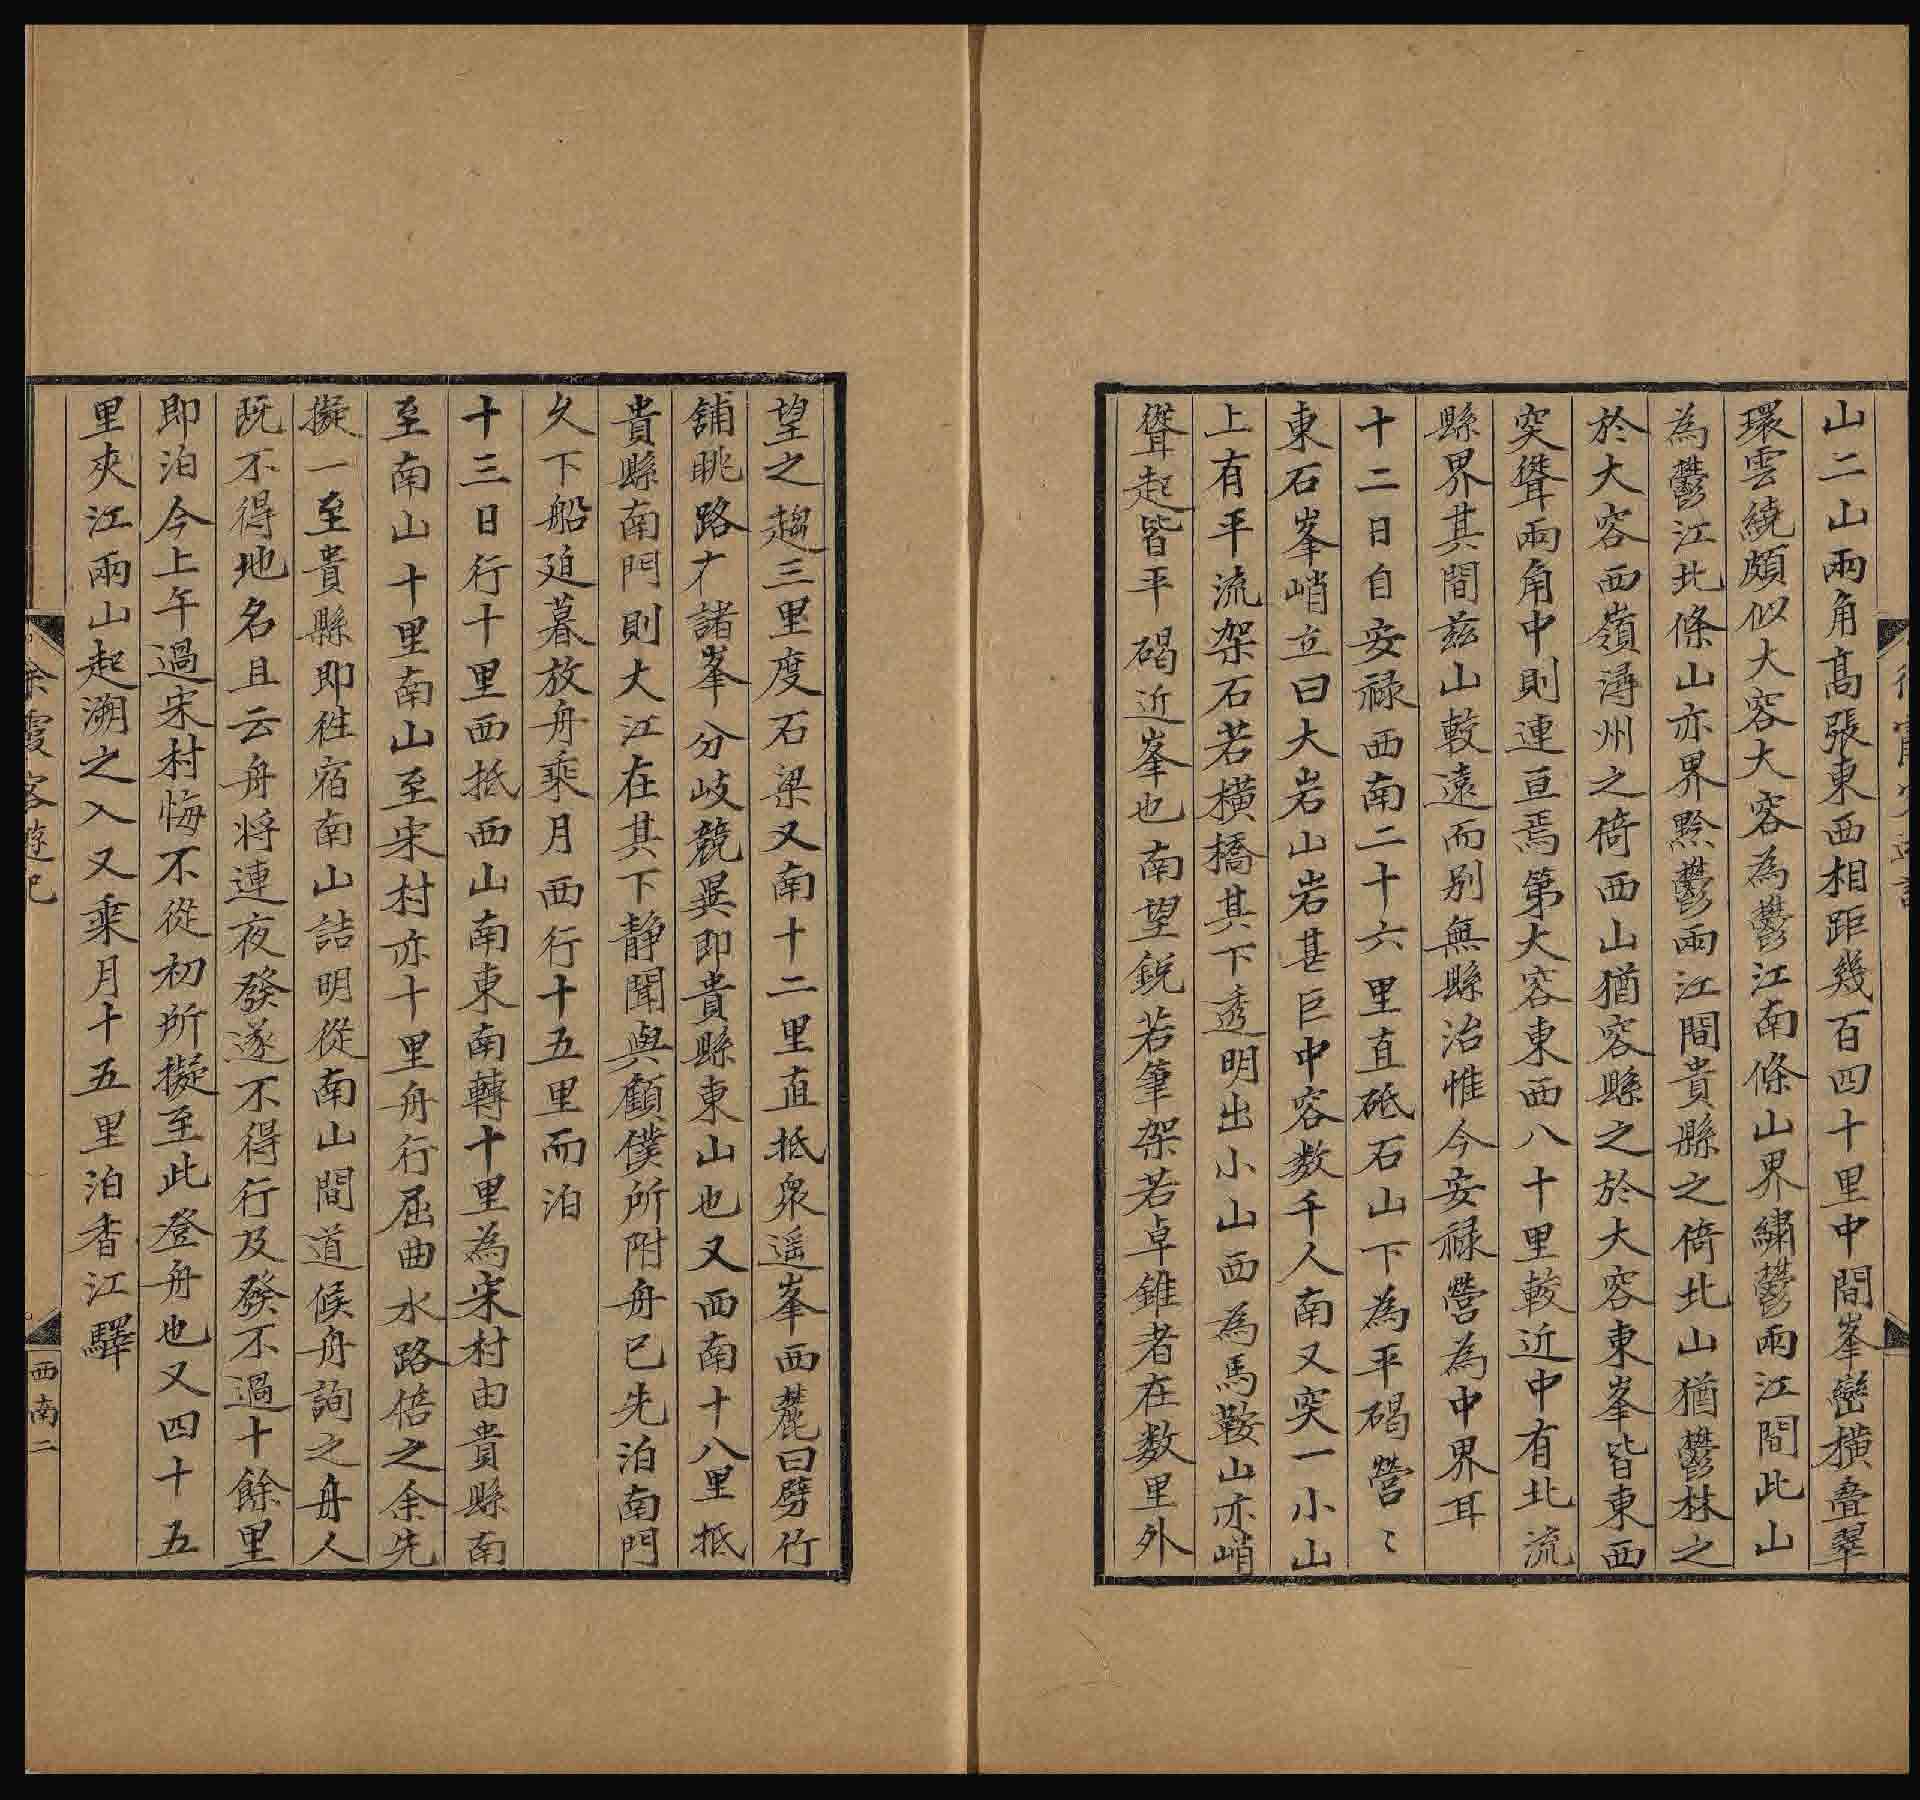 山二山兩角髙張東西相距幾百四十里中間峯巒橫叠翠
環雲繞頗似大容大容為鬱江南條山界繡鬱兩江間此山
為鬱江北條山亦界黔鬱兩江間貴縣之倚北山猶鬱林之
於大容西嶺潯州之倚西山猶容縣之於大容東峯皆東西
突聳兩角中則連亘焉第大容東西八十里較近中有北流
縣界其間兹山較遠而别無縣治惟今安禄營為中界耳
十二日自安禄西南二十六里直砥石山下為平碣營〻
東石峯峭立曰大岩山岩甚巨中容数千人南又突一小山
上有平流架石若橫橋其下透明出小山西為馬鞍山亦峭
聳起皆平碣近峯也南望鋭若筆架若卓錐者在数里外
望之趨三里度石梁又南十二里直抵衆遥峯西麓曰劈竹
舖眺路才諸峯分岐競異即貴縣東山也又西南十八里抵
貴縣南門則大江在其下静聞與顧僕所附舟已先泊南門
久下船廹暮放舟乘月西行十五里而泊
十三日行十里西抵西山南東南轉十里為宋村由貴縣南
至南山十里南山至宋村亦十里舟行屈曲水路倍之余先
擬一至貴縣即徃宿南山詰明從南山間道候舟詢之舟人
既不得地名且云舟将連夜發遂不得行及發不過十餘里
即泊今上午過宋村悔不從初所擬至此登舟也又四十五
里夾江兩山起溯之入又乘月十五里泊香江驛
徐霞客遊記
西南二